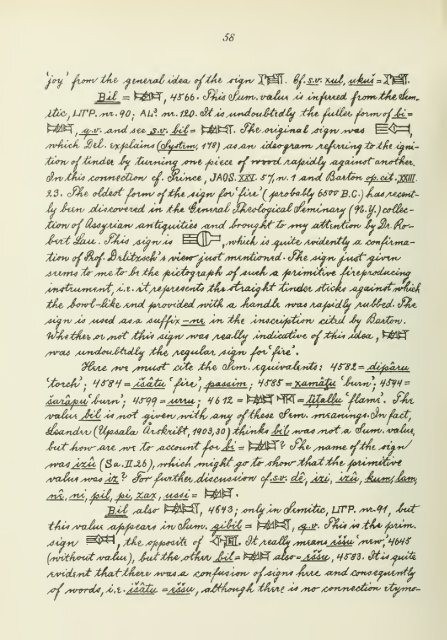 58
'joy' from the general idea of the sign 𒄾. Cf. s.v. xul, ukuš =
Bil = , 4566. This Sum. value is inferred from the Sem-
itic, LTP. nr. 90; AL³ nr. 120. It is undoubtedly the fuller form of bi =
, q.v. and see s.v. bil = . The original sign was ,
which Del. explains (System, 178) as an ideogram referring to the igni-
tion of tinder by turning one piece of wood rapidly against another.
In this connection cf. Prince, JAOS. XXV. 57, n. 1 and Barton op. cit. XXIII.
23. The oldest form of the sign for 'fire' (probably 6500 B.C.) has recent-
ly been discovered in the General Theological Seminary (N.Y.) collec-
tion of Assyrian antiquities and brought to my attention by Dr. Ro-
bert Lau. This sign is , which is quite evidently a confirma-
tion of Prof. Delitzsch's view just mentioned. The sign just given
seems to me to be the pictograph of such a primitive fireproducing
instrument, i.e. it represents the straight tinder sticks against which
the bowl-like end provided with a handle was rapidly rubbed. The
sign is used as a suffix -ne in the inscription cited by Barton.
Whether or not this sign was really indicative of this idea,
was undoubtedly the regular sign for 'fire'.
Here we must cite the Sem. equivalents: 4582 = dipâru
'torch'; 4584 = išâtu 'fire'; passim; 4585 = xamâṭu 'burn'; 4594 =
šarâpu 'burn'; 4599 = urru; 4612 = = titallu 'flame'. The
value bil is not given with any of these Sem. meanings. In fact,
Leander (Upsala Årskrift, 1903, 30) thinks bil was not a Sum. value,
but how are we to account for bi = ? The name of the sign
was izû (Sa. II. 26), which might go to show that the primitive
value was iz? For further discussion cf. s.v. dê, izi, izû, kum, lam,
nê, ni, pil, pi, zax, ussi = .
Bil also , 4643; only in Semitic, LTP. nr. 91, but
this value appears in Sum. gibil = , q.v. This is the prim.
sign , the opposite of . It really means iššu 'new,' 4645
(without value), but the other bil = also = eššu, 4583. It is quite
evident that there was a confusion of signs here and consequently
of words, i.e. išâtu = eššu, although there is no connection etymo-